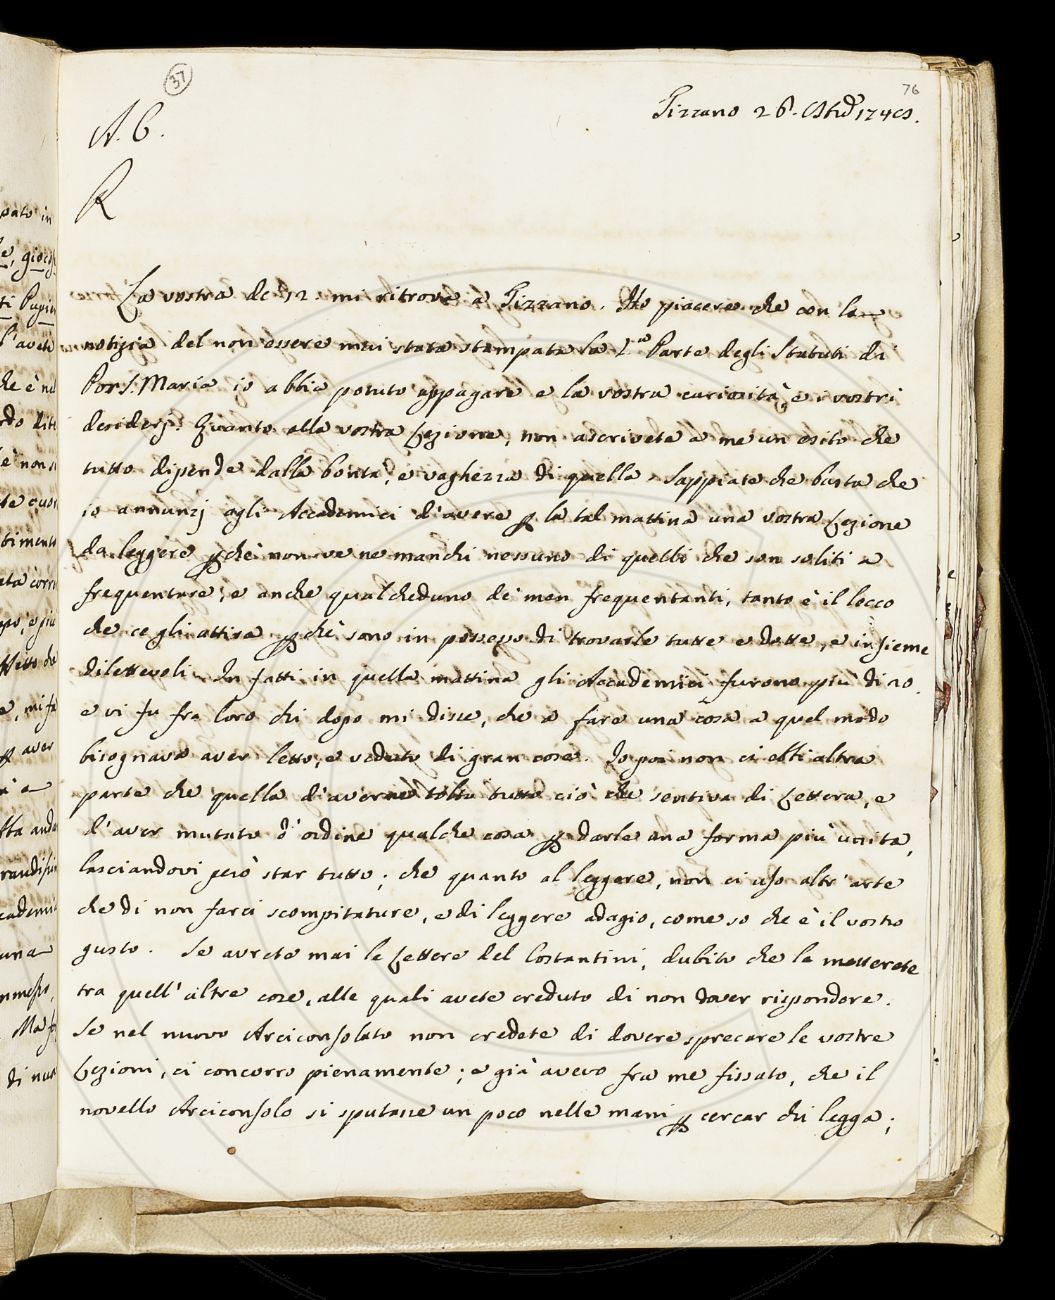 37
76
A. C.
R
Tizzano 26. 8bre 174
La vostra de 12 mi ritrova a Tizzano. Ho piacere che con la
notizia del non essere mai stata stampata la Parte degli Statuti di
Por S. Maria io abbia potuto appagare e la vostra curiosità, e i vostri
desiderj. Quanto alla vostra Lezione, non ascrivete a me un esito che
tutto dipende dalla bontà, e vaghezza di quella. Sappiate che basta che
io annunzj agli Accademici d'avere p la tal mattina una vostra Lezione
da leggere pchè non ve ne manchi nessuno di quelli che son soliti a
frequentare, e anche qualcheduno de' men frequentanti, tanto è il lecco
che ce gli attira pchè sono in possesso di trovarle tutte e dotte, e insieme
dilettevoli. In fatti in quella mattina gli Accademici furono più di 20.
e vi fu fra loro chi dopo mi disse, che a fare una cosa a quel modo
bisognava aver letto, e veduto di gran cose. Io poi non ci ebbi altra
parte che quella d'averne tolto tutto ciò che sentiva di Lettera, e
d'aver mutato d'ordine qualche cosa p darle una forma più unita,
lasciandovi però star tutto; che quanto al leggere, non ci uso altr'arte
che di non farci scompitature, e di leggere adagio, come so che è il vostro
gusto. Se avrete mai le Lettere del Costantini, dubito che le metterete
tra quell'altre cose, alle quali avete creduto di non dover rispondere.
Se nel nuovo Arciconsolato non credete di dovere sprecare le vostre
Lezioni, ci concorro pienamente; e già avevo fra me fissato, che il
novello Arciconsolo si sputasse un poco nelle mani p cercar chi legga;